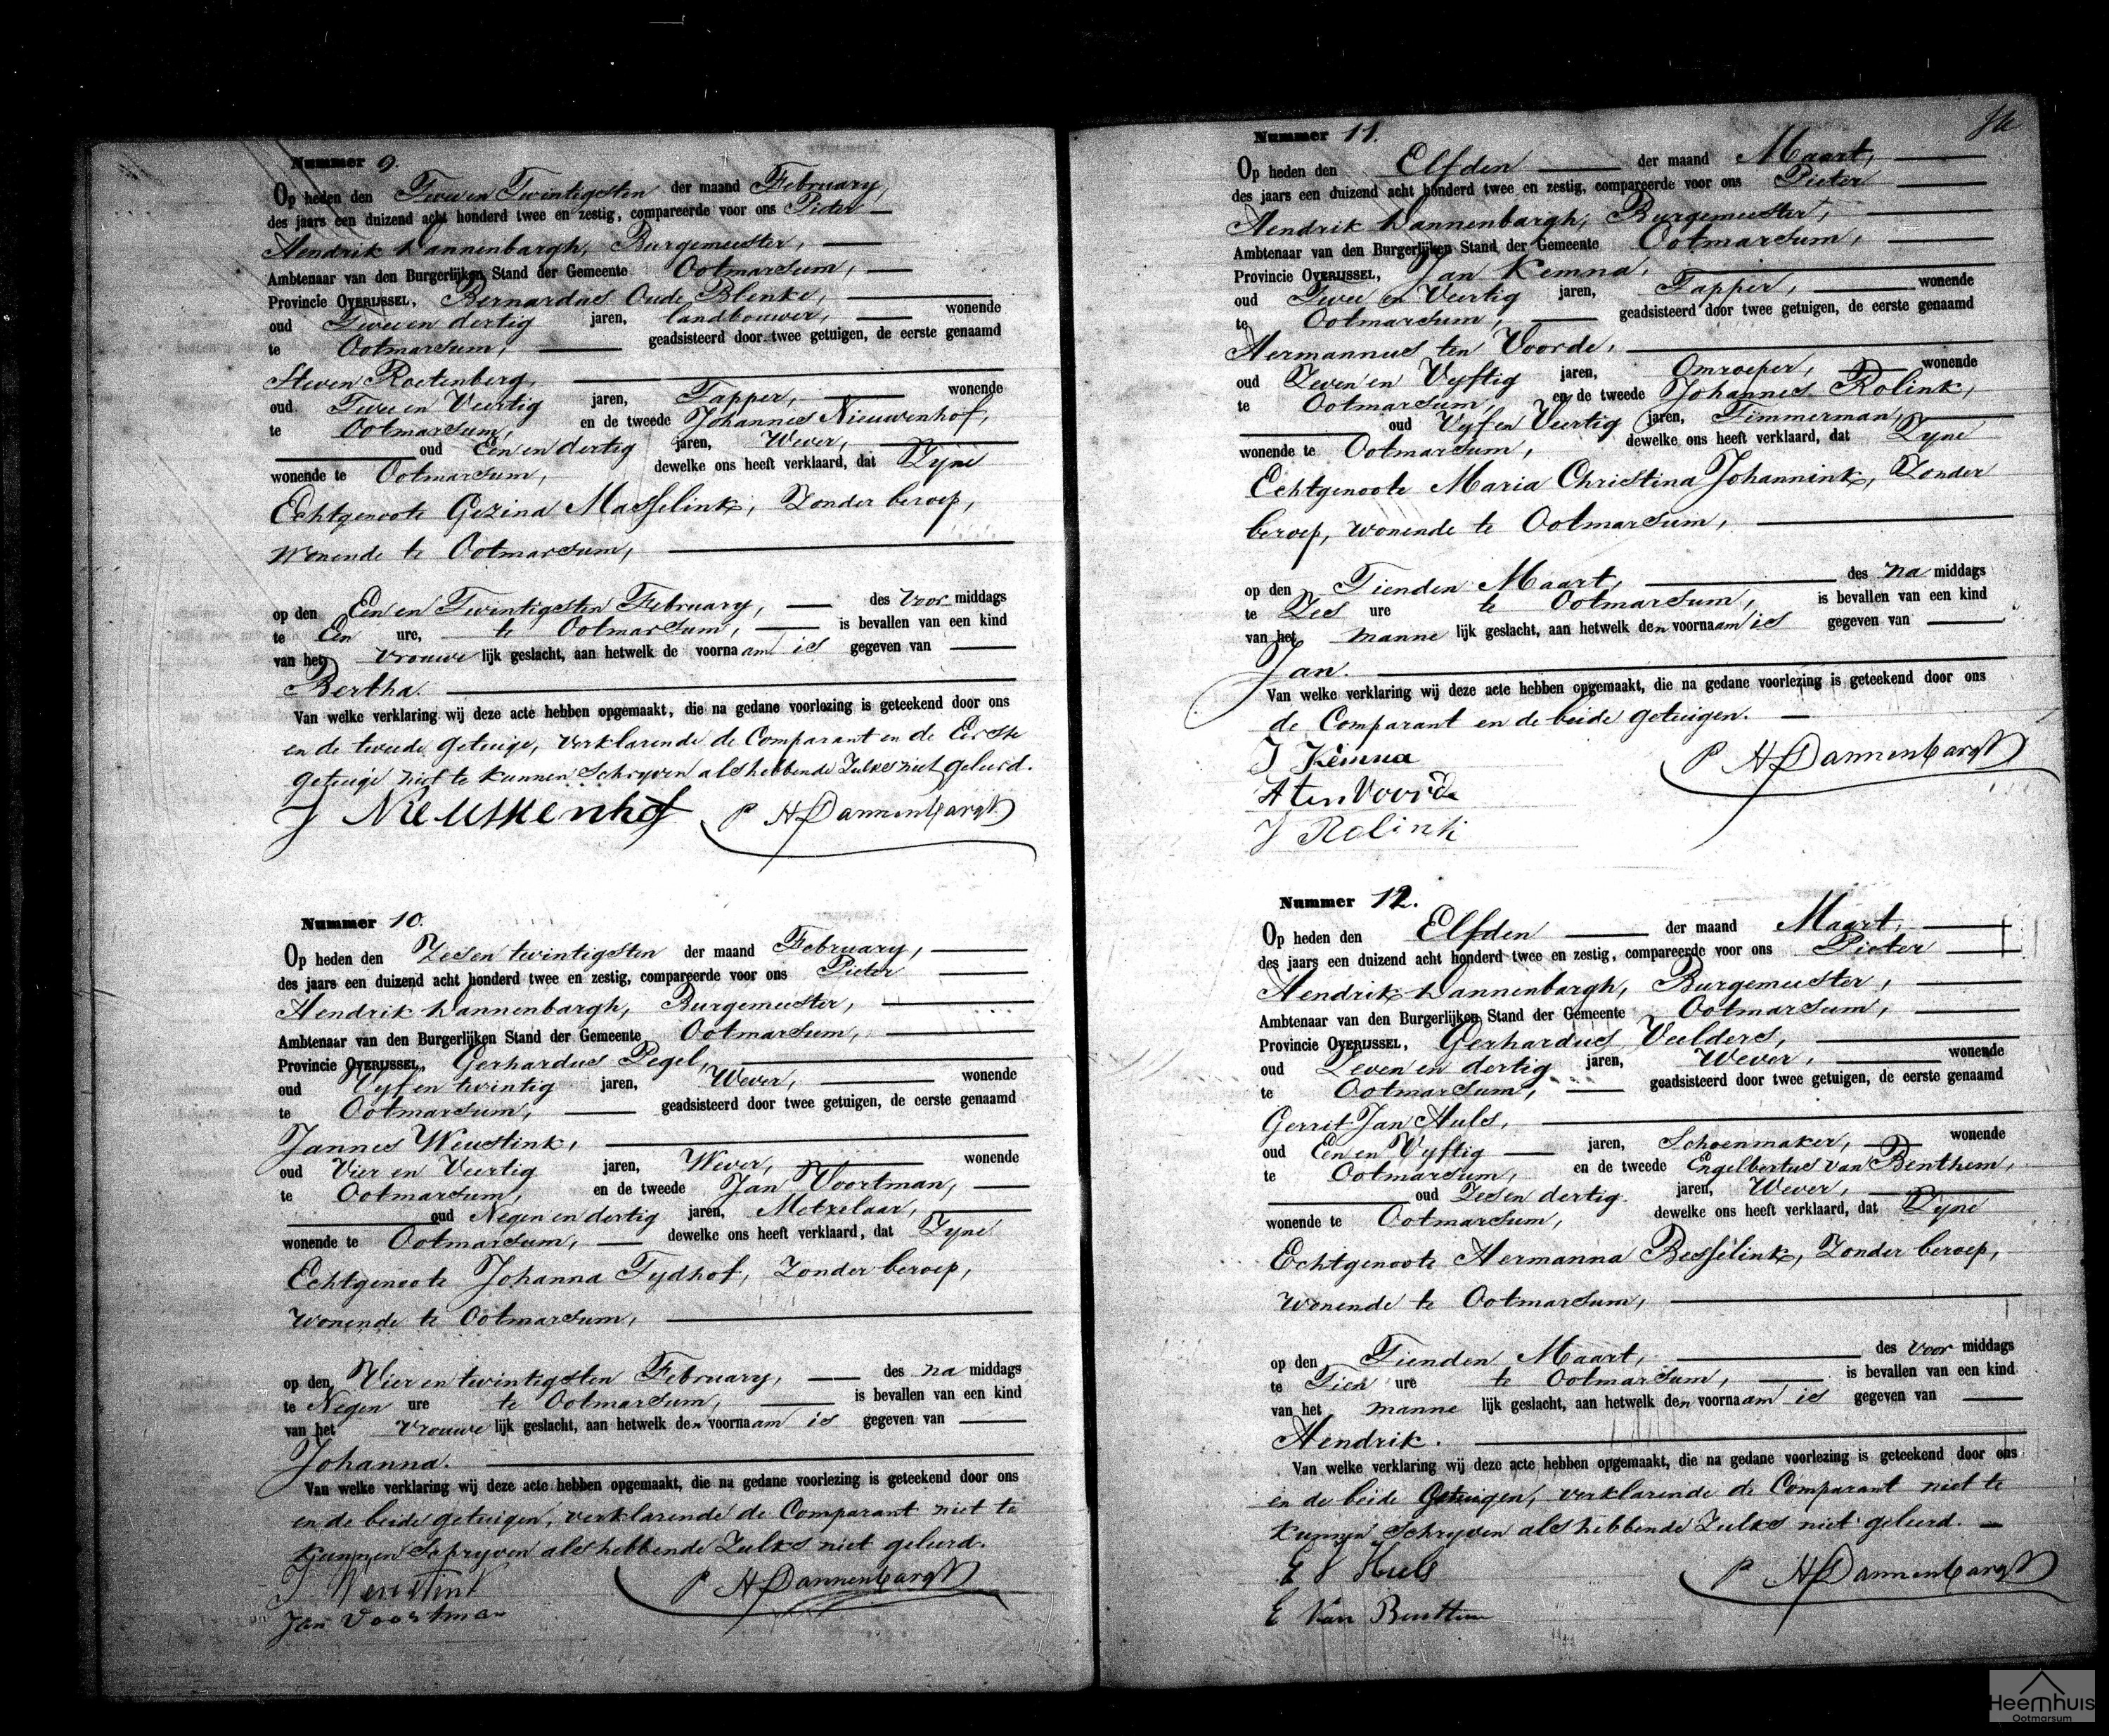 Nummer 9.
Op heden den Twee en Twintigsten der maand February,
des jaars een duizend acht honderd twee en zestig, compareerde voor ons Pieter
Hendrik Dannenbargh, Burgemeester,
Ambtenaar van den Burgerlijken Stand der Gemeente Ootmarsum,
Provincie OVERIJSSEL, Bernardus Oude Blenke,
oud Twee en dertig jaren, landbouwer, wonende
te Ootmarsum, geadsisteerd door twee getuigen, de eerste genaamd
Steven Roetenberg,
oud Twee en Veertig jaren, Tapper, wonende
te Ootmarsum, en de tweede Johannes Nieuwenhof,
oud Een en dertig jaren, Wever,
wonende te Ootmarsum, dewelke ons heeft verklaard, dat Zyne
Echtgenoote Gezina Masselink, Zonder beroep,
Wonende te Ootmarsum,
op den Een en Twintigsten February, des Voor middags
te Een ure, te Ootmarsum, is bevallen van een kind
van het vrouwe lijk geslacht, aan hetwelk de voornaam is gegeven van
Bertha.
Van welke verklaring wij deze acte hebben opgemaakt, die na gedane voorlezing is geteekend door ons
en de tweede getuige, verklarende de Comparant en de Eerste
getuige niet te kunnen Schryven als hebbende Zulks niet geleerd.
J Nieuwenhof P H Dannenbargh
Nummer 10.
Op heden den Zes en twintigsten der maand February,
des jaars een duizend acht honderd twee en zestig, compareerde voor ons Pieter
Hendrik Dannenbargh, Burgemeester,
Ambtenaar van den Burgerlijken Stand der Gemeente Ootmarsum,
Provincie OVERIJSSEL, Gerhardus Pegel,
oud Vyf en twintig jaren, Wever, wonende
te Ootmarsum, geadsisteerd door twee getuigen, de eerste genaamd
Jannes Weustink,
oud Vier en Veertig jaren, Wever, wonende
te Ootmarsum, en de tweede Jan Voortman,
oud Negen en dertig jaren, Metzelaar,
wonende te Ootmarsum, dewelke ons heeft verklaard, dat Zyne
Echtgenoote Johanna Tydhof, Zonder beroep,
Wonende te Ootmarsum,
op den Vier en twintigsten February, des na middags
te Negen ure te Ootmarsum, is bevallen van een kind
van het Vrouwe lijk geslacht, aan hetwelk den voornaam is gegeven van
Johanna.
Van welke verklaring wij deze acte hebben opgemaakt, die na gedane voorlezing is geteekend door ons
en de beide getuigen, verklarende de Comparant niet te
kunnen Schryven als hebbende Zulks niet geleerd.
J Weustink P H Dannenbargh
Jan Voortman
Nummer 11.
Op heden den Elfden der maand Maart,
des jaars een duizend acht honderd twee en zestig, compareerde voor ons Pieter
Hendrik Dannenbargh, Burgemeester,
Ambtenaar van den Burgerlijken Stand der Gemeente Ootmarsum,
Provincie OVERIJSSEL, Jan Kemna,
oud Twee en Veertig jaren, Tapper, wonende
te Ootmarsum, geadsisteerd door twee getuigen, de eerste genaamd
Hermannus ten Voorde,
oud Zeven en Vyftig jaren, Omroeper, wonende
te Ootmarsum, en de tweede Johannes Rolink,
oud Vyf en Veertig jaren, Timmerman,
wonende te Ootmarsum, dewelke ons heeft verklaard, dat Zyne
Echtgenoote Maria Christina Johannink, Zonder
beroep, wonende te Ootmarsum,
op den Tienden Maart, des na middags
te Zes ure te Ootmarsum, is bevallen van een kind
van het manne lijk geslacht, aan hetwelk den voornaam is gegeven van
Jan.
Van welke verklaring wij deze acte hebben opgemaakt, die na gedane voorlezing is geteekend door ons
de Comparant en de beide getuigen.
J Kemna P H Dannenbargh
H ten Voorde
J Rolink
Nummer 12.
Op heden den Elfden der maand Maart,
des jaars een duizend acht honderd twee en zestig, compareerde voor ons Pieter
Hendrik Dannenbargh, Burgemeester,
Ambtenaar van den Burgerlijken Stand der Gemeente Ootmarsum,
Provincie OVERIJSSEL, Gerhardus Veelders,
oud Zeven en dertig jaren, Wever, wonende
te Ootmarsum, geadsisteerd door twee getuigen, de eerste genaamd
Gerrit Jan Huls,
oud Een en Vyftig jaren, Schoenmaker, wonende
te Ootmarsum, en de tweede Engelbertus van Benthem,
oud Zes en dertig jaren, Wever,
wonende te Ootmarsum, dewelke ons heeft verklaard, dat Zyne
Echtgenoote Hermanna Besselink, Zonder beroep,
Wonende te Ootmarsum,
op den Tienden Maart, des voor middags
te Tien ure te Ootmarsum, is bevallen van een kind
van het manne lijk geslacht, aan hetwelk den voornaam is gegeven van
Hendrik.
Van welke verklaring wij deze acte hebben opgemaakt, die na gedane voorlezing is geteekend door ons
en de beide Getuigen, verklarende de Comparant niet te
kunnen Schryven als hebbende Zulks niet geleerd.
Huls P H Dannenbargh
E Van Benthem
Heemhuis
Ootmarsum